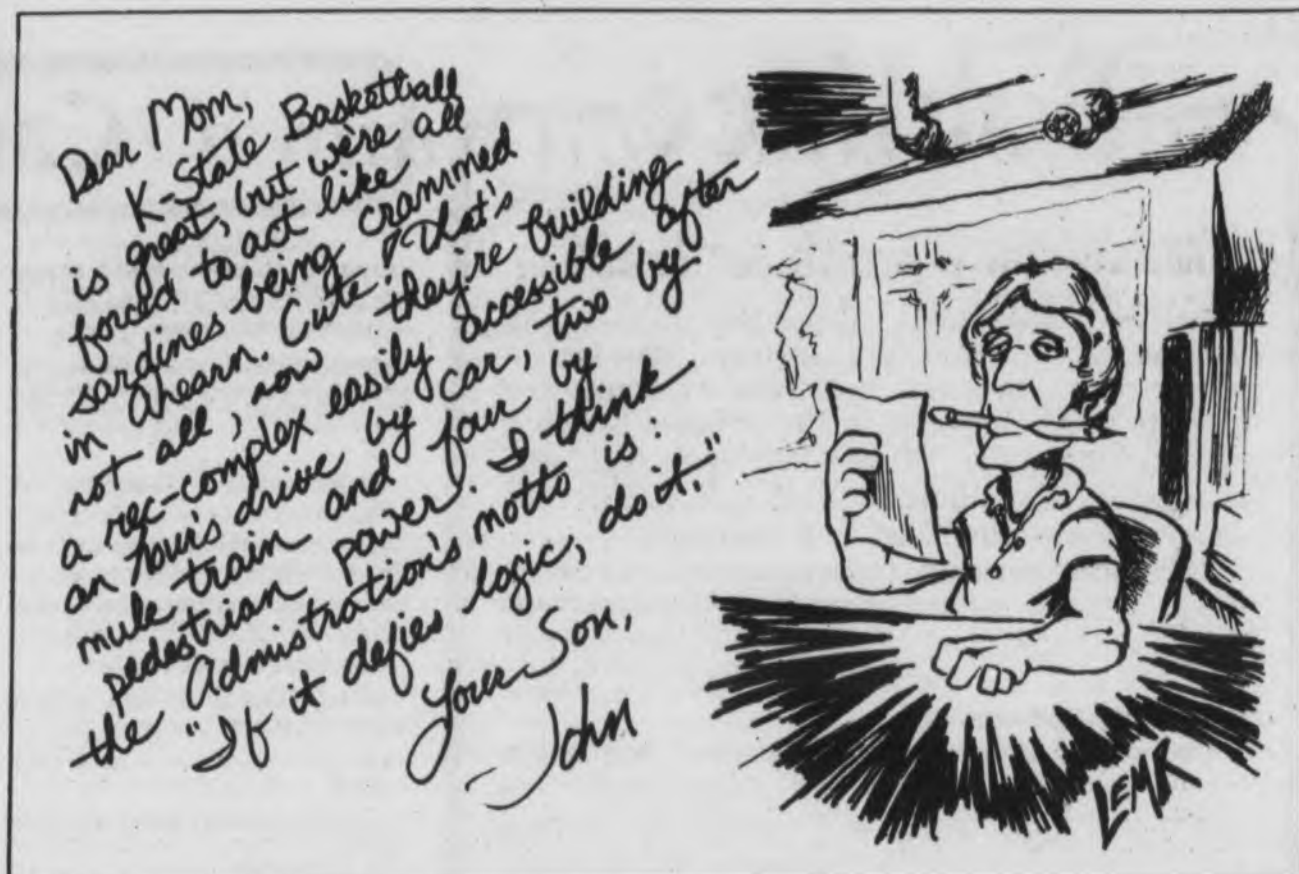 Dear Mom,
K-State Basketball
is great, but we're all
forced to act like
sardines being crammed
in Ahearn. Cute! That's
not all, now they're building
a rec-complex easily accessible after
an hour's drive by car, two by
mule train and four by
pedestrian power. I think
the Admistration's motto is:
"If it defies logic, do it."
Your Son,
John
LEMK